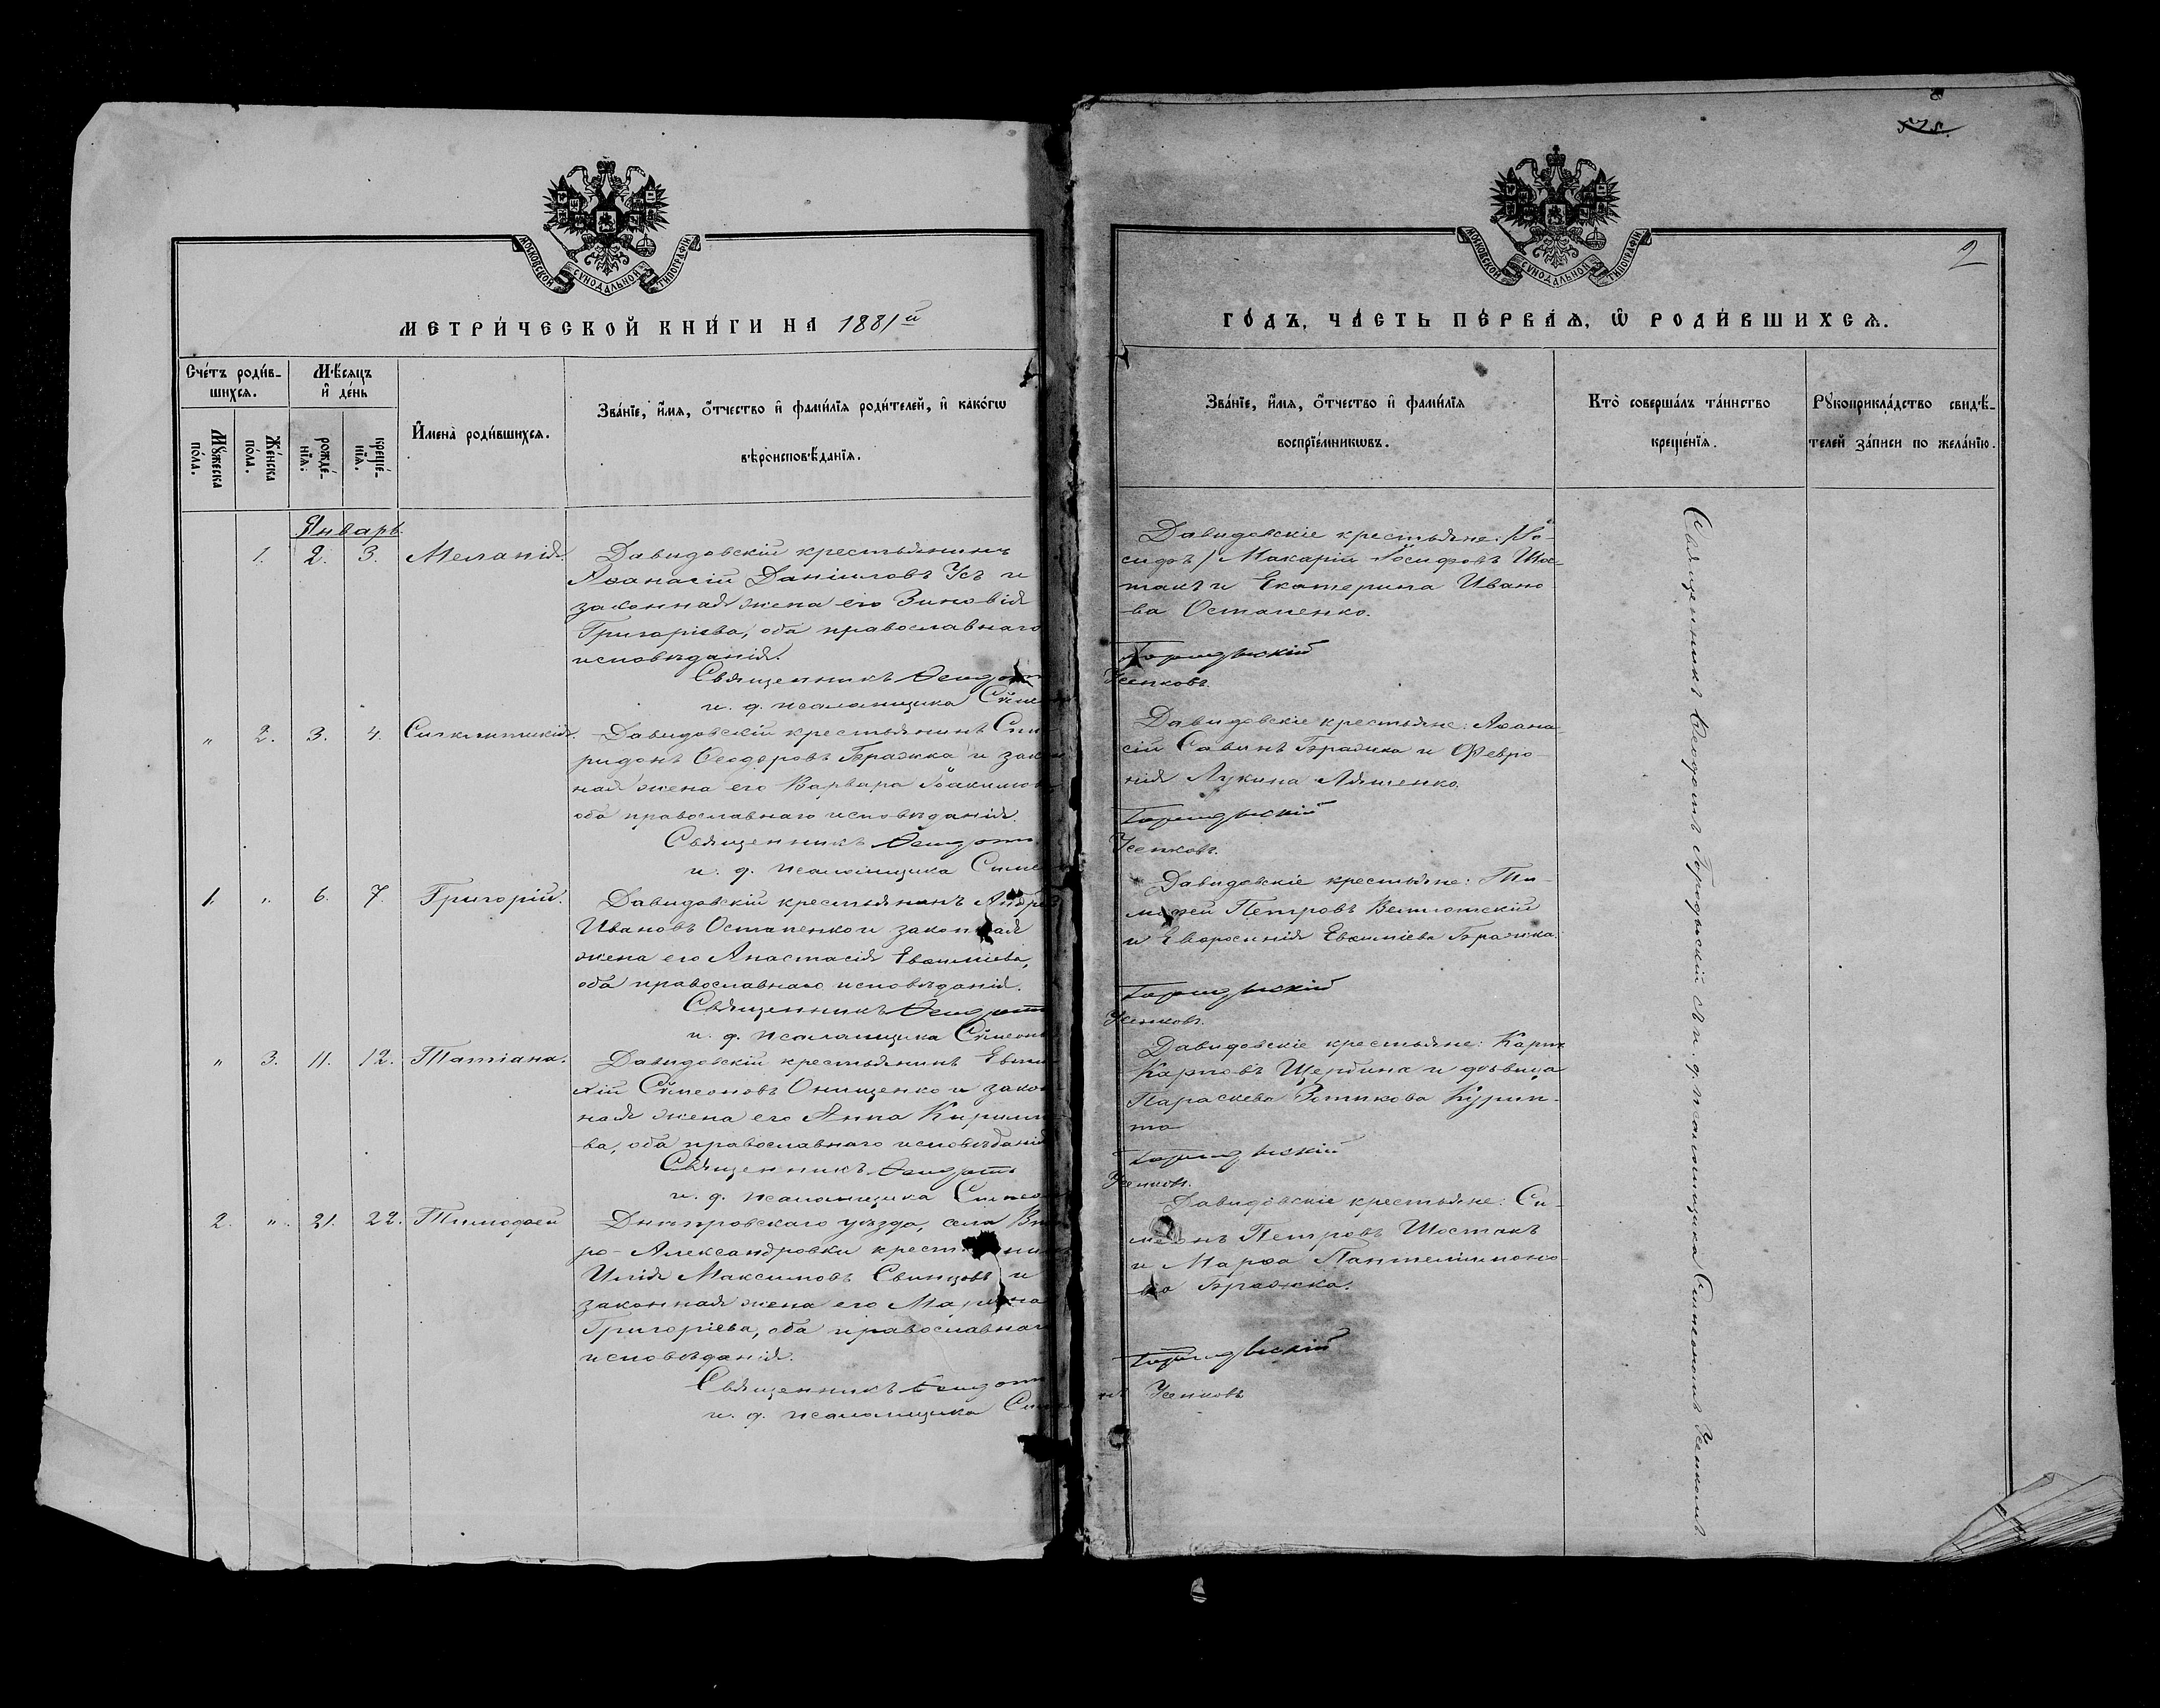 МОСКОВСКОЙ СѴНОДАЛЬНОЙ ТИПОГРАФІИ
МЕТРИ́ЧЕСКОЙ КНИ́ГИ НА 1881й
Сче́тъ роди́в-
шихся.
Мѣ́сяцъ
и҆ де́нь
Мꙋ́жеска
по́ла.
Же́нска
по́ла.
рожде́-
нїѧ.
креще́-
нїѧ.
И҆мена̀ роди́вшихсѧ.
Зва́нїе, и҆́мѧ, ѻ҆́тчество и҆ фами́лїѧ роди́телей, и҆ како́гѡ
вѣроисповѣ́данїѧ.
Январь.
1. 2. 3. Меланія.
Давидовскій крестьянинъ
Аѳанасій Даніиловъ Усъ и
законная жена его Зиновія
Григоріева, оба православнаго
исповѣданія.
Священникъ Ѳеодотъ
и. д. псаломщика Сѵмео
" 2. 3. 4. Синклитикія.
Давидовскій крестьянинъ Спи-
ридонъ Ѳеодоровъ Бражка и закон
ная жена его Варвара Іоакимов
оба православнаго исповѣданія.
Священникъ Ѳеодотъ
и. д. псаломщика Симе
1. " 6. 7. Григорій.
Давидовскій крестьянинъ Андрей
Ивановъ Остапенко и законная
жена его Анастасія Евѳиміева,
оба православнаго исповѣданія.
Священникъ Ѳеодотъ
и. д. псаломщика Сѵмеонъ
" 3. 11. 12. Татіана.
Давидовскій крестьянинъ Евѳи-
мій Сѵмеоновъ Онищенко и закон
ная жена его Анна Кирилло-
ва, оба православнаго исповѣданія
Священникъ Ѳеодотъ
и. д. псаломщика Симео
2. " 21. 22. Тимоѳей
Днѣпровскаго уѣзда, села
ро-Александровки крестьянинъ
Илія Максимовъ Свинцовъ и
законная жена его Марина
Григоріева, оба православнаго
исповѣданія.
Священникъ Ѳеодотъ
и. д. псаломщика Сим
575.
МОСКОВСКОЙ СѴНОДАЛЬНОЙ ТИПОГРАФІИ
2
ГО́ДЪ, ЧА́СТЬ ПЕ́РВАѦ, Ѡ҆ РОДИ́ВШИХСѦ.
Зва́нїе, и҆́мѧ, ѻ҆́тчество и҆ фами́лїѧ
воспрїе́мникѡвъ.
Кто̀ соверша́лъ та́инство
креще́нїѧ.
Рꙋкоприкла́дство свидѣ́-
телей за́писи по жела́нїю.
Давидовскіе крестьяне: /Іо-
сифъ/ Макарій Іосифовъ Шос-
такъ и Екатерина Ивано
ва Остапенко.
Городыскій
Усенковъ.
Давидовскіе крестьяне: Аѳана-
сій Савинъ Бражка и Февро-
нія Лукина Ляшенко.
Городыскій
Усенковъ.
Давидовскіе крестьяне: Ти-
моѳей Петровъ
и Евфросинія Евѳиміева Бражка.
Городыскій
Усенковъ.
Давидовскіе крестьяне: Карпъ
Карповъ Щербина и дѣвица
Параскева Фотикова Курип-
та
Городыскій
Усенков.
Давидовскіе крестьяне: Си-
меонъ Петровъ Шостакъ
и Марѳа Пантелеимоно-
ва Бражка.
Городыскій
нъ Усенковъ
Священникъ Ѳеодотъ Городыскій съ и. д. псаломщика Симеономъ Усенкомъ